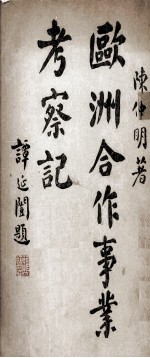 陳仲明著
歐洲合作事業
考察記
譚延闓題